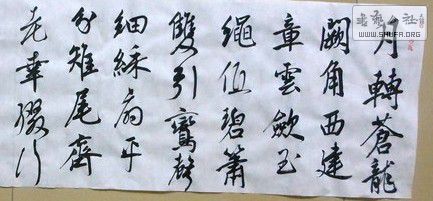 月轉蒼龍
闕角西建
章雲斂玉
繩低碧簫
雙引鸞聲
細綵扇平
分雉尾齊
老幸綴行